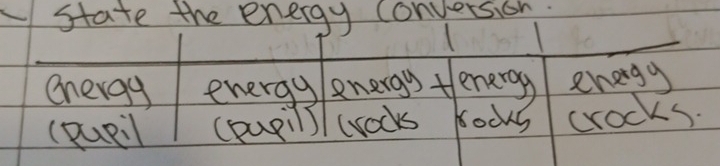 State the energy conversion.
energy energy energy + energy energy
(pupil (pupil) (rocks rocks (rocks.